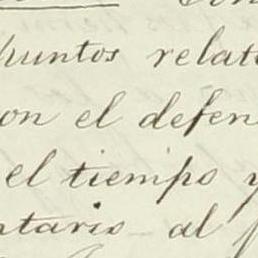 puntos relat
on el defen
el tiempo y
ntario al